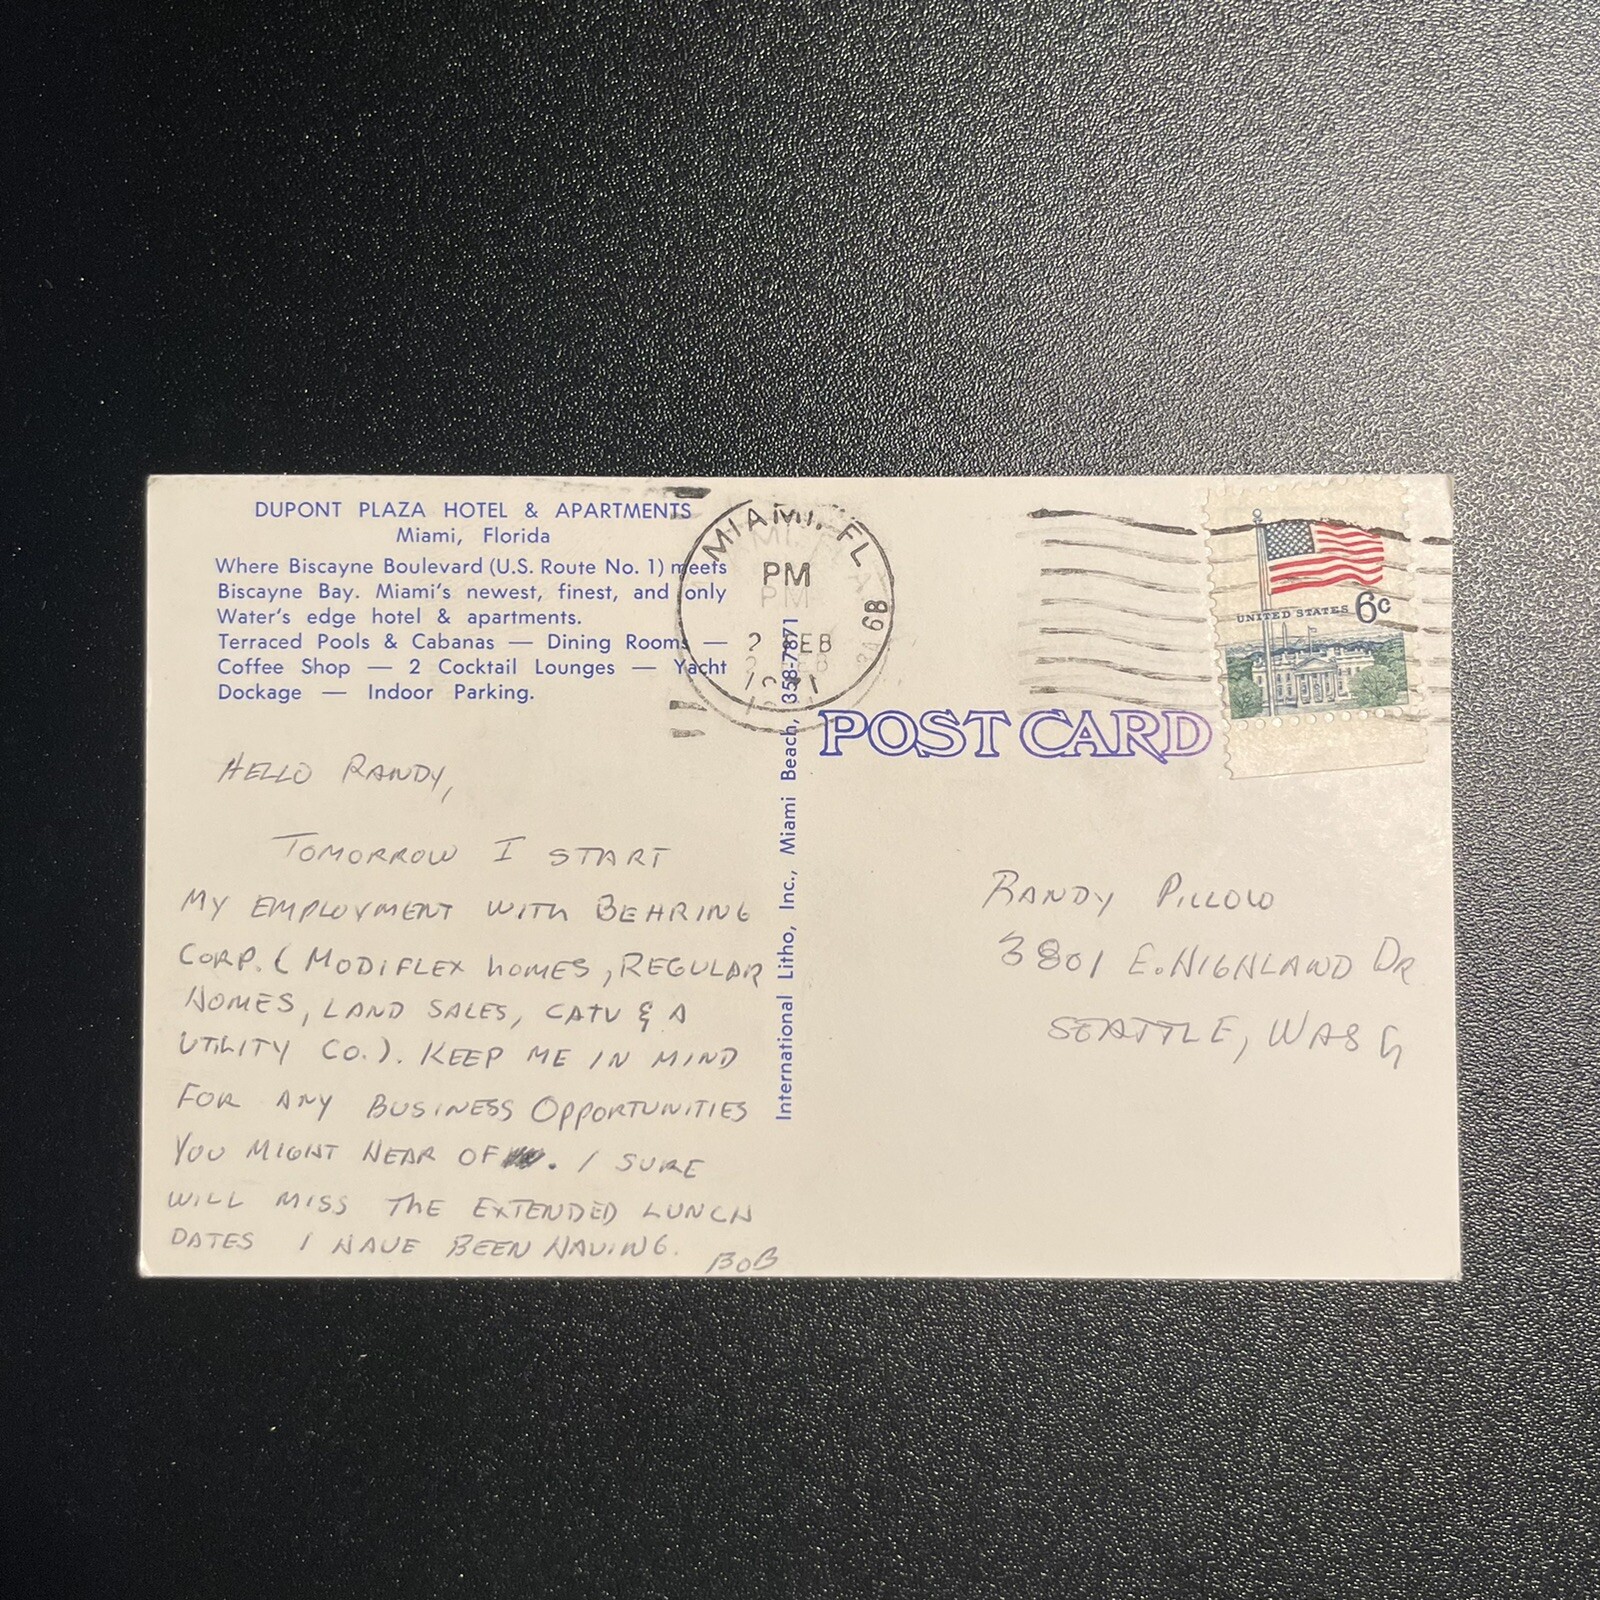 DUPONT PLAZA HOTEL & APARTMENTS
Miami, Florida
Where Biscayne Boulevard (U.S. Route No. 1) meets
Biscayne Bay. Miami's newest, finest, and only
Water's edge hotel & apartments.
Terraced Pools & Cabanas — Dining Rooms —
Coffee Shop — 2 Cocktail Lounges — Yacht
Dockage — Indoor Parking.
HELLO RANDY,
TOMORROW I START
MY EMPLOYMENT WITH BEHRING
CORP. ( MODIFLEX HOMES, REGULAR
HOMES, LAND SALES, CATV & A
UTILITY CO.). KEEP ME IN MIND
FOR ANY BUSINESS OPPORTUNITIES
YOU MIGHT HEAR OF. I SURE
WILL MISS THE EXTENDED LUNCH
DATES I HAVE BEEN HAVING.
BOB
International Litho, Inc., Miami Beach, 358-7871
MIAMI, FL
PM
2 FEB
6B
POST CARD
UNITED STATES 6c
RANDY PILLOW
3801 E. HIGHLAND DR
SEATTLE, WASH